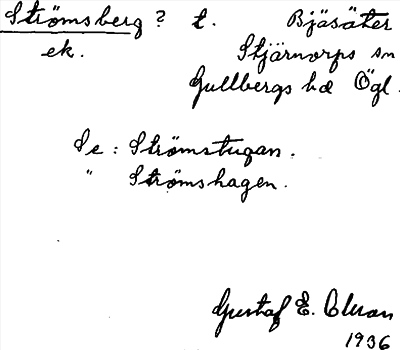 Strömsberg ? t. Bjäsäter
ek. Stjärnorps sn
Gullbergs hd Ögl.
Se : Strömstugan.
" Strömshagen.
Gustaf E.
1936